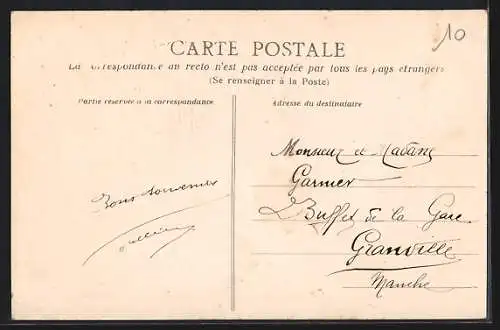 10
CARTE POSTALE
La correspondance au recto n'est pas acceptée par tous les pays étrangers
(Se renseigner à la Poste)
Partie réservée à la correspondance
Adresse du destinataire
Bons souvenirs
Monsieur et Madame
Garnier
Buffet de la Gare
Granville
Manche